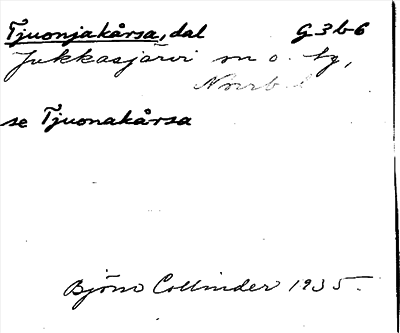 Tjuonjakårsa, dal G 3 b 6
Jukkasjärvi sn o. tg,
Norrb
se Tjuonakårsa
Björn Collinder 1935.